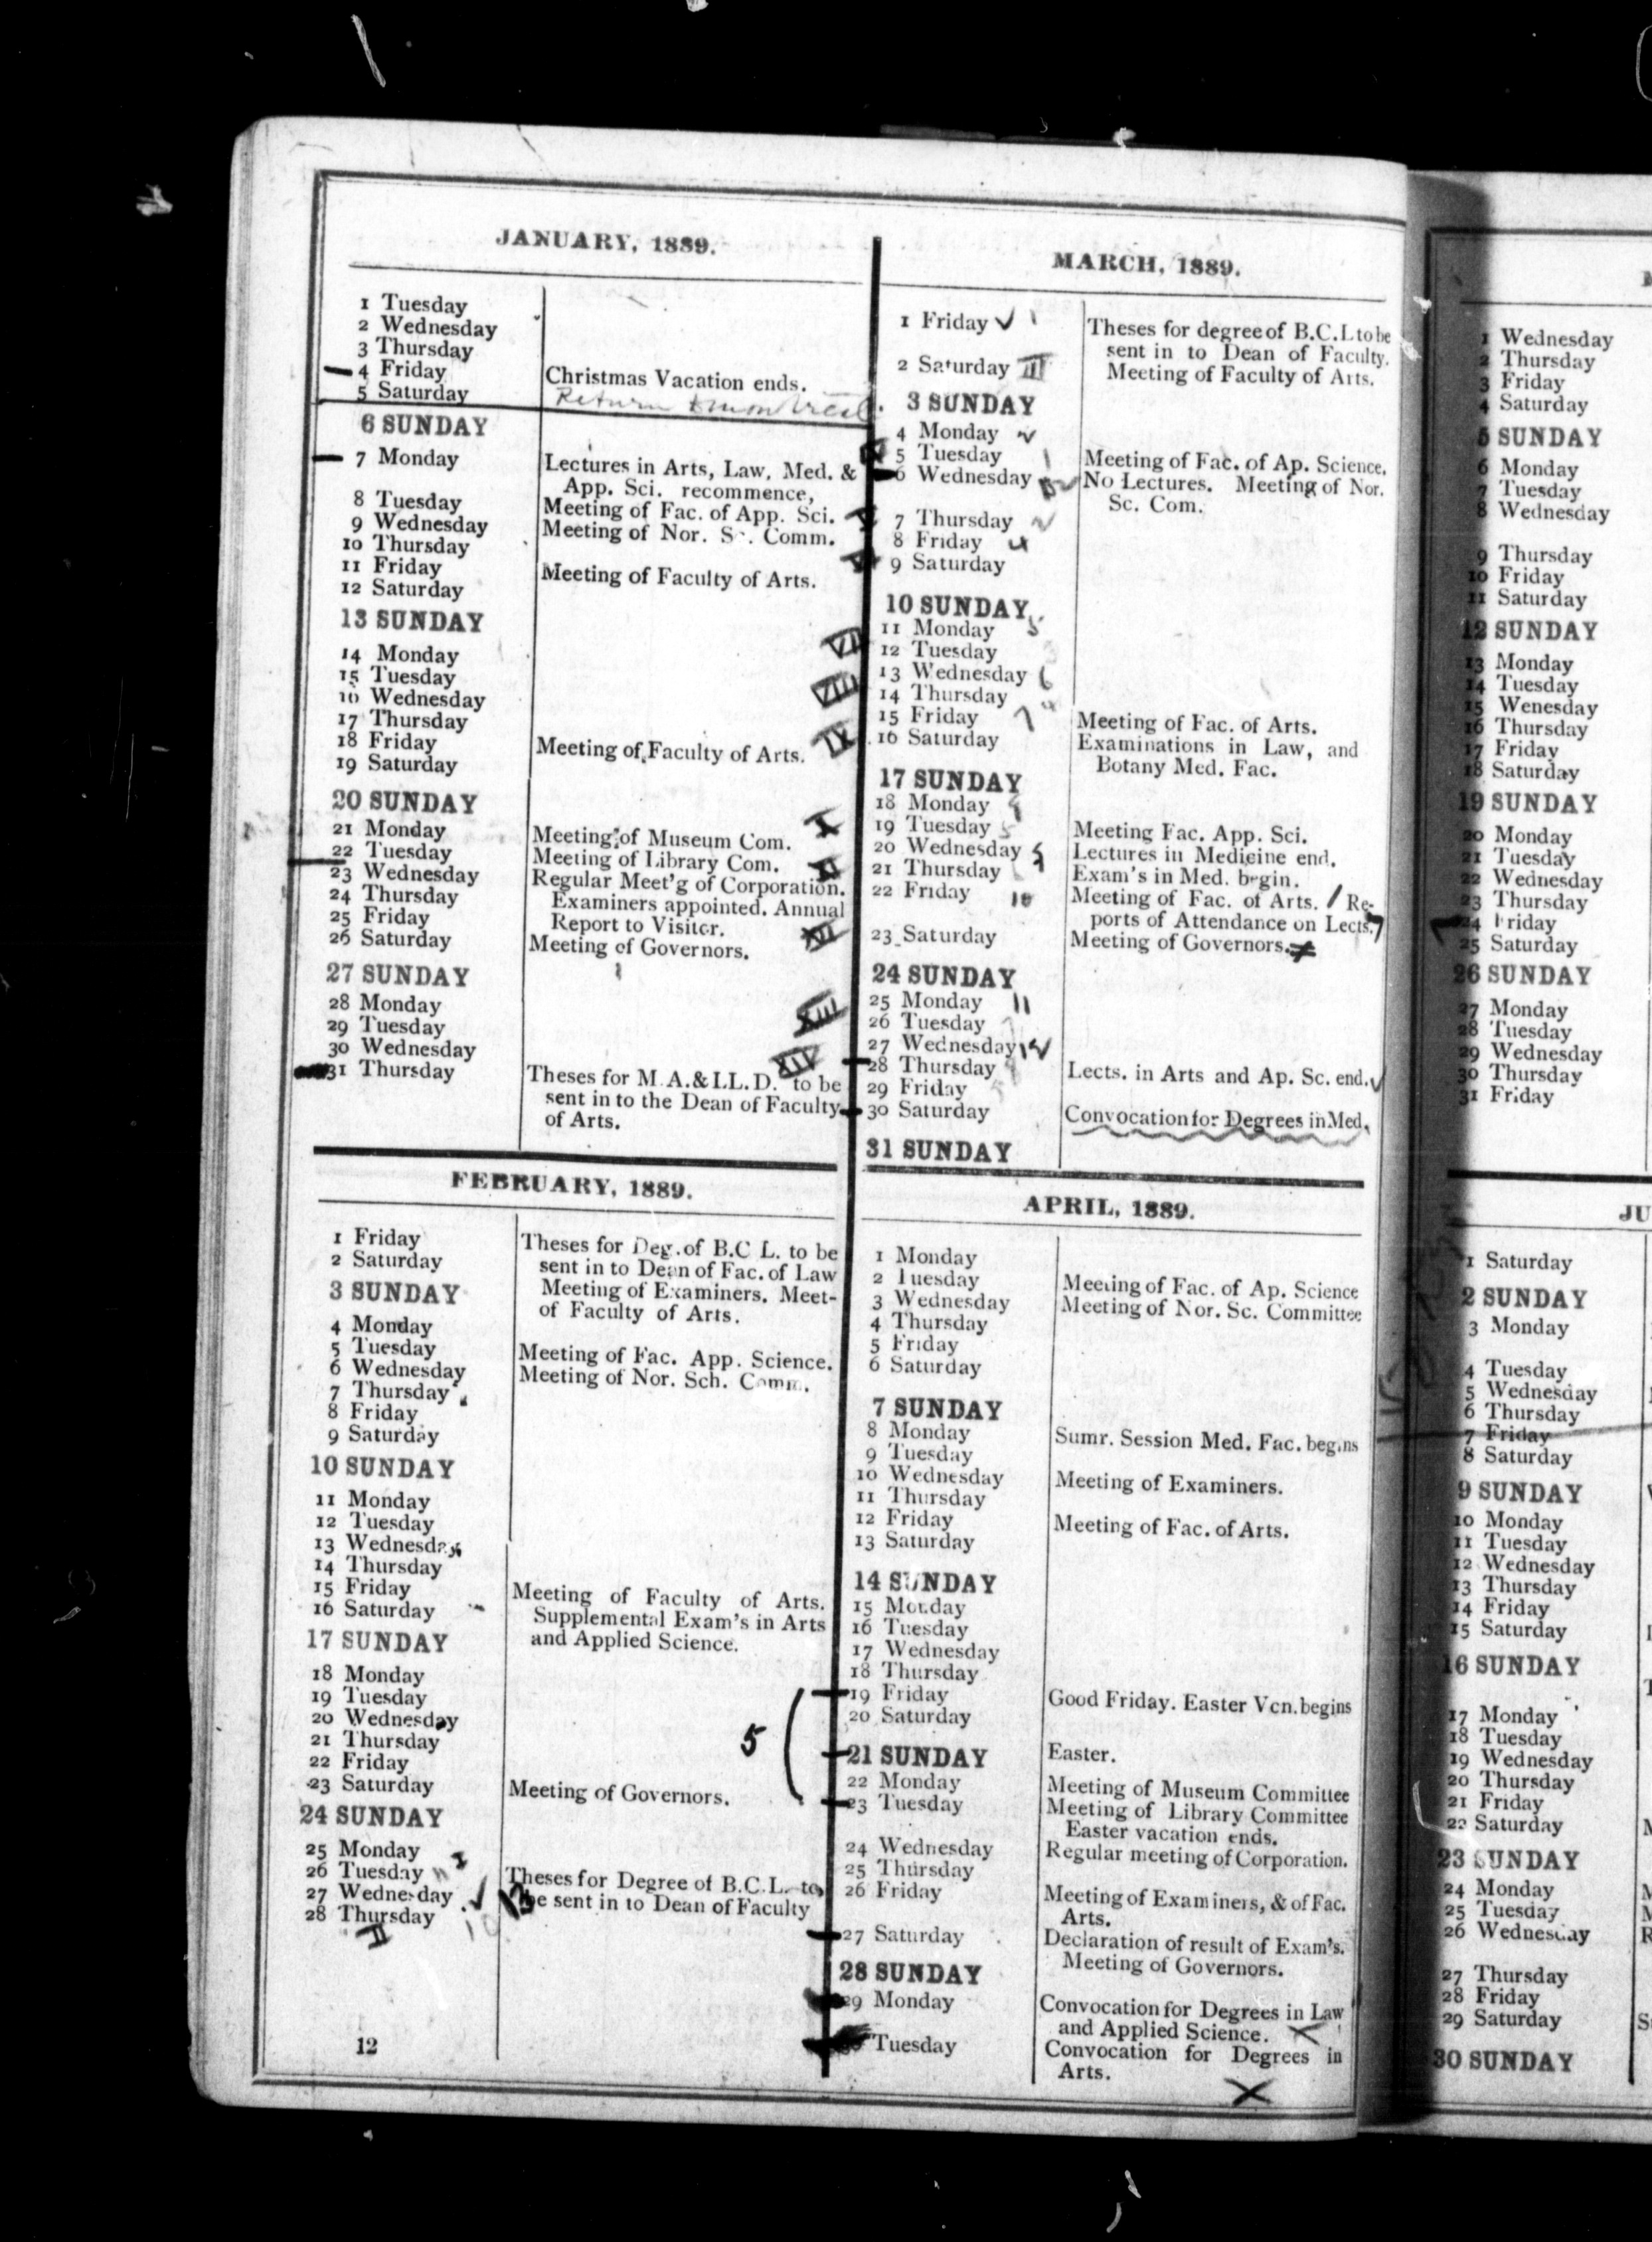 JANUARY, 1889.
1 Tuesday
2 Wednesday
3 Thursday
4 Friday Christmas Vacation ends.
5 Saturday Return to montreal
6 SUNDAY
7 Monday Lectures in Arts, Law, Med. &
App. Sci. recommence,
8 Tuesday Meeting of Fac. of App. Sci.
9 Wednesday Meeting of Nor. Sc. Comm.
10 Thursday
11 Friday Meeting of Faculty of Arts.
12 Saturday
13 SUNDAY
14 Monday
15 Tuesday
16 Wednesday
17 Thursday
18 Friday Meeting of Faculty of Arts.
19 Saturday
20 SUNDAY
21 Monday Meeting of Museum Com.
22 Tuesday Meeting of Library Com.
23 Wednesday Regular Meet'g of Corporation.
24 Thursday Examiners appointed. Annual
25 Friday Report to Visitor.
26 Saturday Meeting of Governors.
27 SUNDAY
28 Monday
29 Tuesday
30 Wednesday
31 Thursday Theses for M.A. & LL.D. to be
sent in to the Dean of Faculty
of Arts.
FEBRUARY, 1889.
1 Friday Theses for Deg. of B.C L. to be
2 Saturday sent in to Dean of Fac. of Law
3 SUNDAY Meeting of Examiners. Meet-
of Faculty of Arts.
4 Monday
5 Tuesday Meeting of Fac. App. Science.
6 Wednesday Meeting of Nor. Sch. Comm.
7 Thursday
8 Friday
9 Saturday
10 SUNDAY
11 Monday
12 Tuesday
13 Wednesday
14 Thursday
15 Friday Meeting of Faculty of Arts.
16 Saturday Supplemental Exam's in Arts
and Applied Science.
17 SUNDAY
18 Monday
19 Tuesday
20 Wednesday
21 Thursday
22 Friday
23 Saturday Meeting of Governors.
24 SUNDAY
25 Monday
26 Tuesday
27 Wednesday Theses for Degree of B.C.L. to
28 Thursday be sent in to Dean of Faculty
II
12
MARCH, 1889.
1 Friday Theses for degree of B.C.L to be
sent in to Dean of Faculty.
2 Saturday III Meeting of Faculty of Arts.
3 SUNDAY
4 Monday
5 Tuesday Meeting of Fac. of Ap. Science.
6 Wednesday No Lectures. Meeting of Nor.
Sc. Com.
7 Thursday
8 Friday 4
9 Saturday
10 SUNDAY
11 Monday 5
VII 12 Tuesday
13 Wednesday 6
VIII 14 Thursday
15 Friday 7 Meeting of Fac. of Arts.
IX 16 Saturday Examinations in Law, and
Botany Med. Fac.
17 SUNDAY
18 Monday
X 19 Tuesday Meeting Fac. App. Sci.
20 Wednesday Lectures in Medicine end.
XI 21 Thursday Exam's in Med. begin.
22 Friday 10 Meeting of Fac. of Arts. / Re-
ports of Attendance on Lects.
XII 23 Saturday Meeting of Governors.
24 SUNDAY
25 Monday 11
XIII 26 Tuesday
27 Wednesday 12
XIV 28 Thursday Lects. in Arts and Ap. Sc. end.
29 Friday
30 Saturday Convocation for Degrees in Med.
31 SUNDAY
APRIL, 1889.
1 Monday
2 Tuesday Meeting of Fac. of Ap. Science
3 Wednesday Meeting of Nor. Sc. Committee
4 Thursday
5 Friday
6 Saturday
7 SUNDAY
8 Monday Sumr. Session Med. Fac. begins
9 Tuesday
10 Wednesday Meeting of Examiners.
11 Thursday
12 Friday Meeting of Fac. of Arts.
13 Saturday
14 SUNDAY
15 Monday
16 Tuesday
17 Wednesday
18 Thursday
19 Friday Good Friday. Easter Vcn. begins
20 Saturday
5
21 SUNDAY Easter.
22 Monday Meeting of Museum Committee
23 Tuesday Meeting of Library Committee
Easter vacation ends.
24 Wednesday Regular meeting of Corporation.
25 Thursday
26 Friday Meeting of Examiners, & of Fac.
Arts.
27 Saturday Declaration of result of Exam's.
Meeting of Governors.
28 SUNDAY
29 Monday Convocation for Degrees in Law
and Applied Science. X
Tuesday Convocation for Degrees in
Arts.
X
1 Wednesday
2 Thursday
3 Friday
4 Saturday
5 SUNDAY
6 Monday
7 Tuesday
8 Wednesday
9 Thursday
10 Friday
11 Saturday
12 SUNDAY
13 Monday
14 Tuesday
15 Wenesday
16 Thursday
17 Friday
18 Saturday
19 SUNDAY
20 Monday
21 Tuesday
22 Wednesday
23 Thursday
24 Friday
25 Saturday
26 SUNDAY
27 Monday
28 Tuesday
29 Wednesday
30 Thursday
31 Friday
JU
1 Saturday
2 SUNDAY
3 Monday
4 Tuesday
5 Wednesday
6 Thursday
7 Friday
8 Saturday
9 SUNDAY
10 Monday
11 Tuesday
12 Wednesday
13 Thursday
14 Friday
15 Saturday
16 SUNDAY
17 Monday
18 Tuesday
19 Wednesday
20 Thursday
21 Friday
22 Saturday
23 SUNDAY
24 Monday
25 Tuesday
26 Wednesday
27 Thursday
28 Friday
29 Saturday
30 SUNDAY